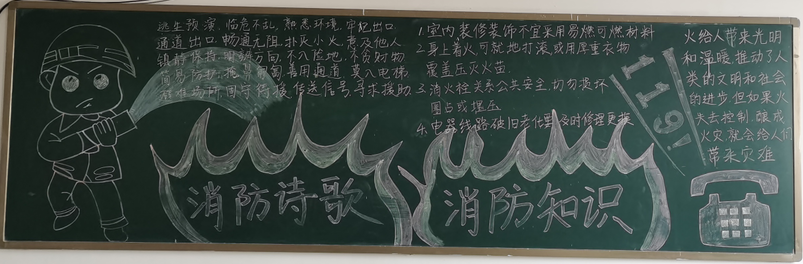 逃生预演,临危不乱,熟悉环境,牢记出口
通道出口,畅通无阻,扑灭小火,惠及他人
镇静 明辨方向,不入险地,不贪财物
简易防护, 善用通道,莫入电梯
固守待援,传送信号,寻求援助
1.室内装修装饰不宜采用易燃可燃材料
2.身上着火可就地打滚或用厚重衣物
覆盖压灭火苗
3.消火栓关系公共安全,切勿损坏
圈占或埋压
4.电器线路破旧老化要及时修理更换
119!
火给人带来光明
和温暖,推动了人
类的文明和社会
的进步,但如果火
失去控制,酿成
火灾,就会给人们
带来灾难
消防诗歌
消防知识